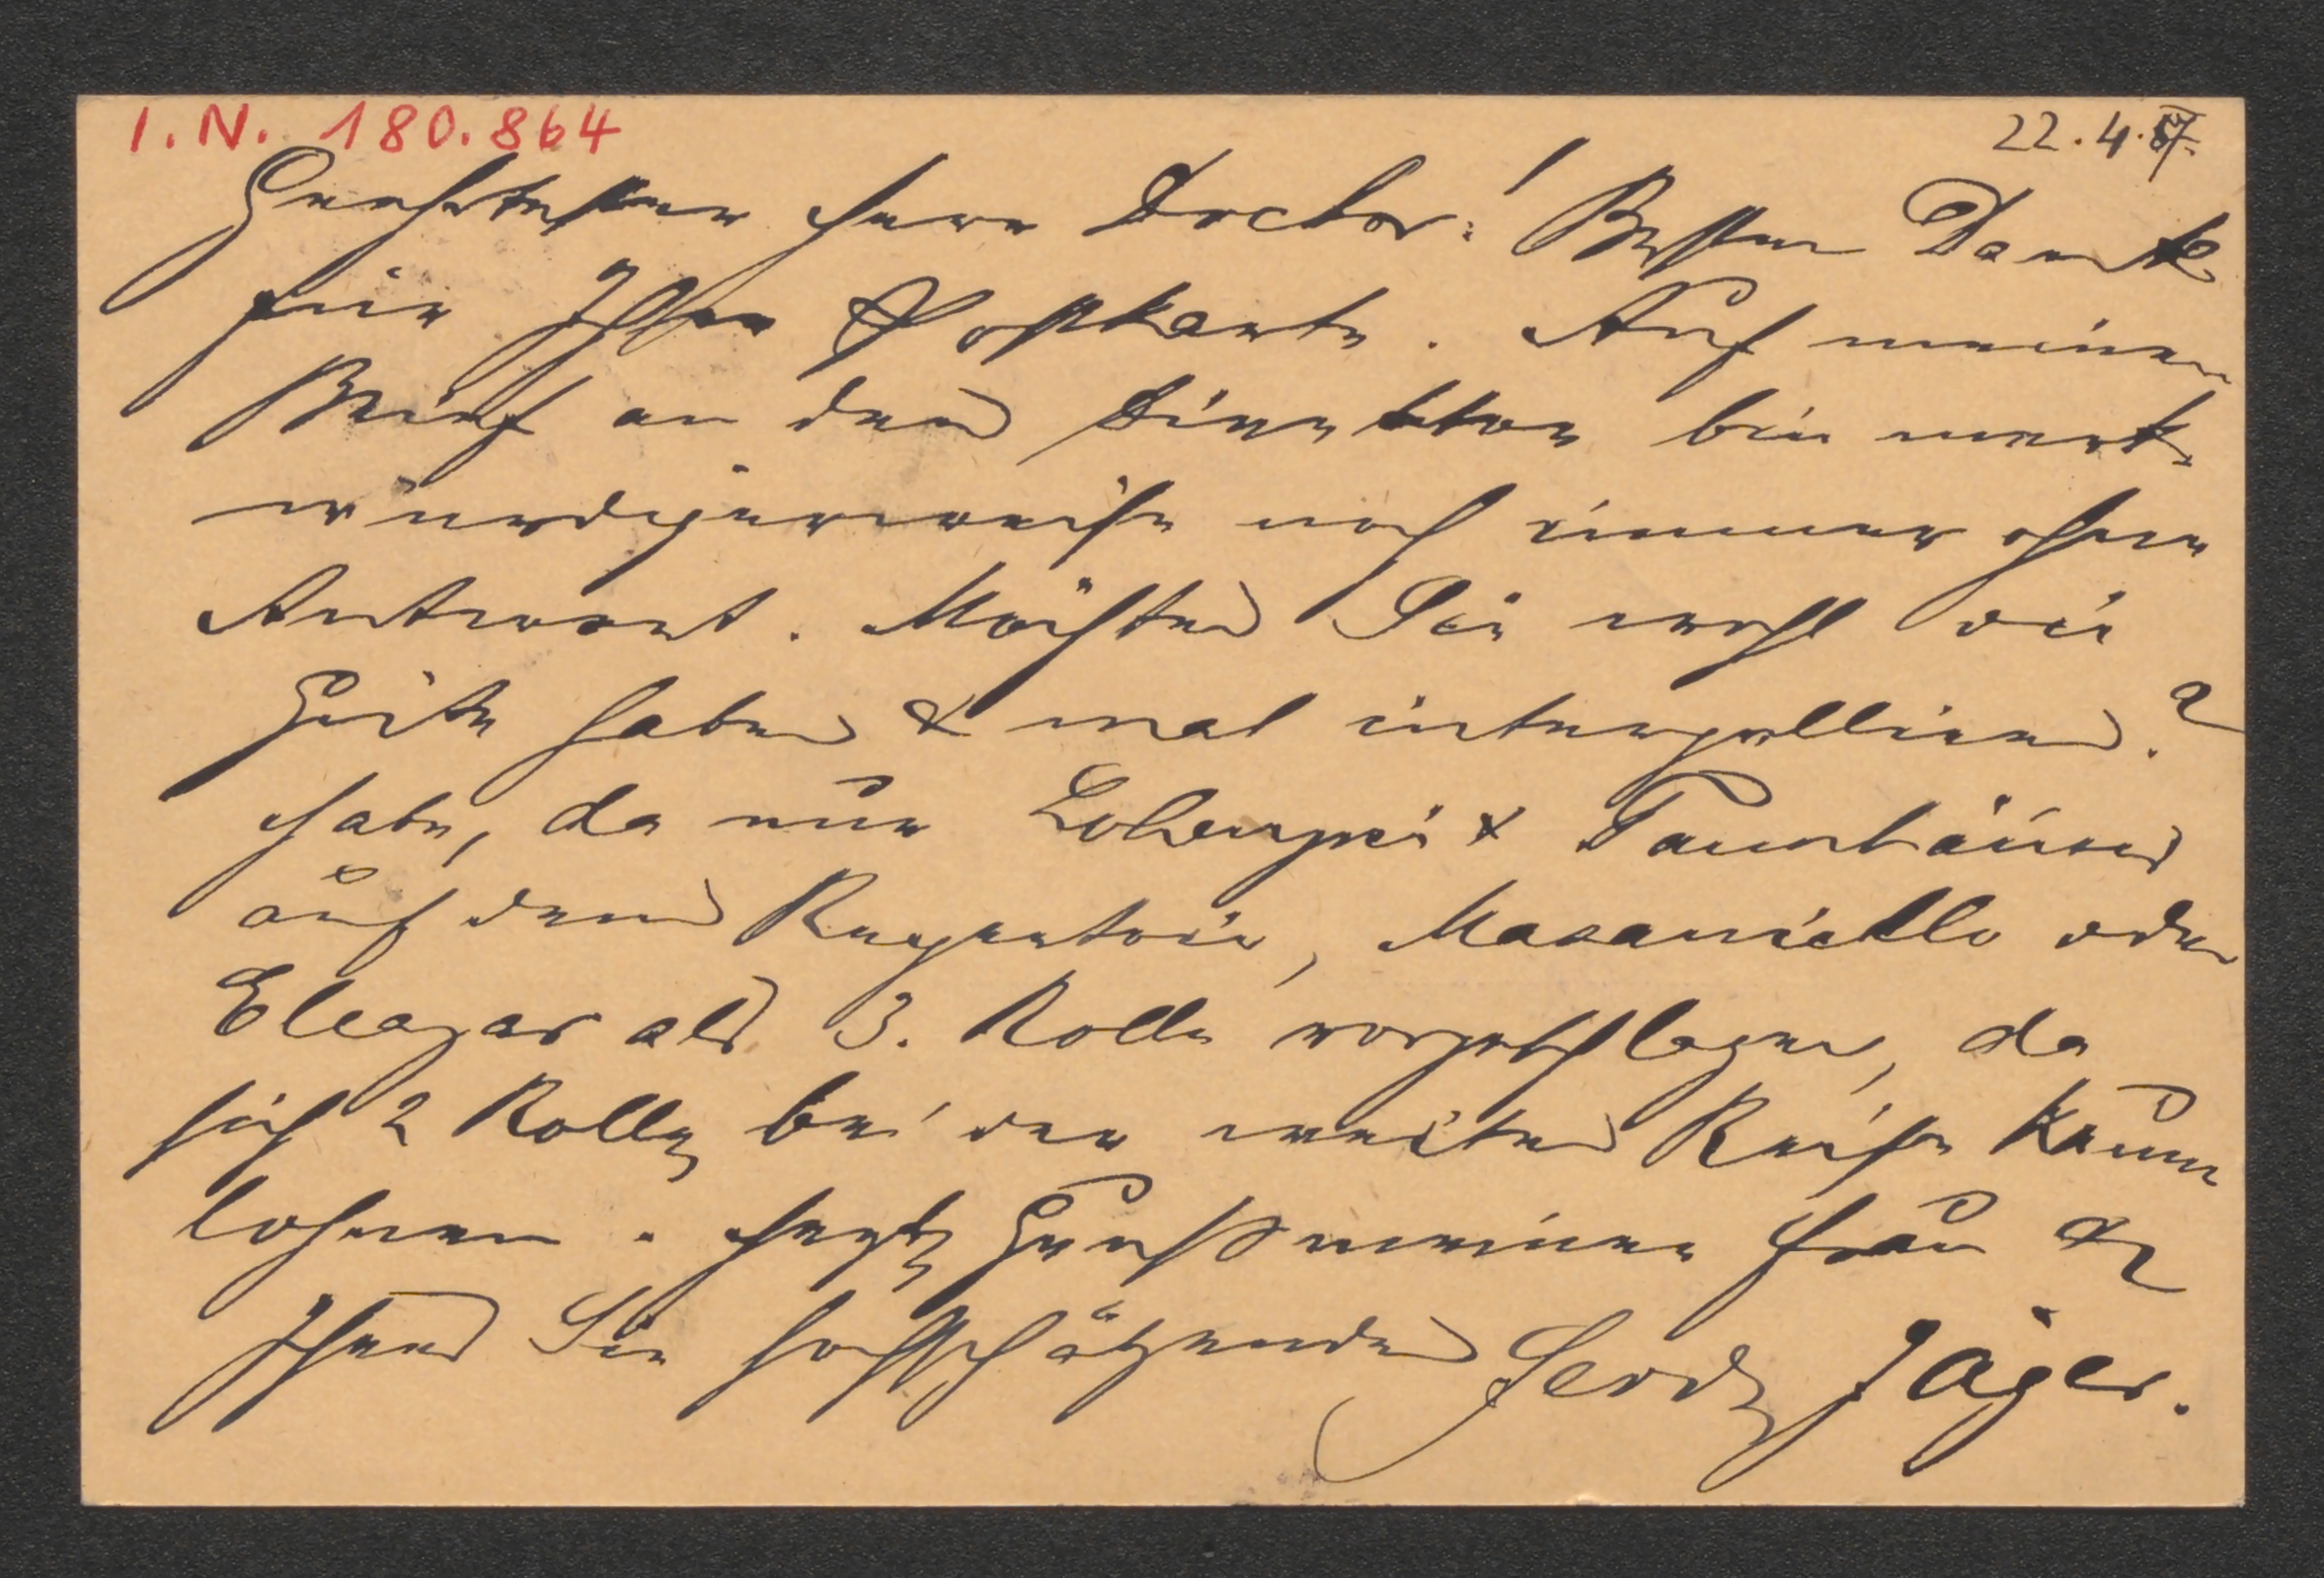 I.N. 180.864
22.4.87.
Geehrtester Herr Doctor! Besten Dank
für Ihre Postkarte. Auf meinen
Brief an den Direktor bin merk-
würdigerweise noch immer ohne
Antwort. Möchten Sie wohl die
Güte haben & mal interpellieren?
Habe, da nur Lohengrin & Tannhäuser
auf dem Repertoir, Masaniello oder
Eleazar als 3. Rolle vorgeschlagen, da
sich 2 Rollen bei der weiten Reise kaum
lohnen. Herzl Gruß meiner Frau &
Ihnen Sie hochschätzenden Ferd Jäger.